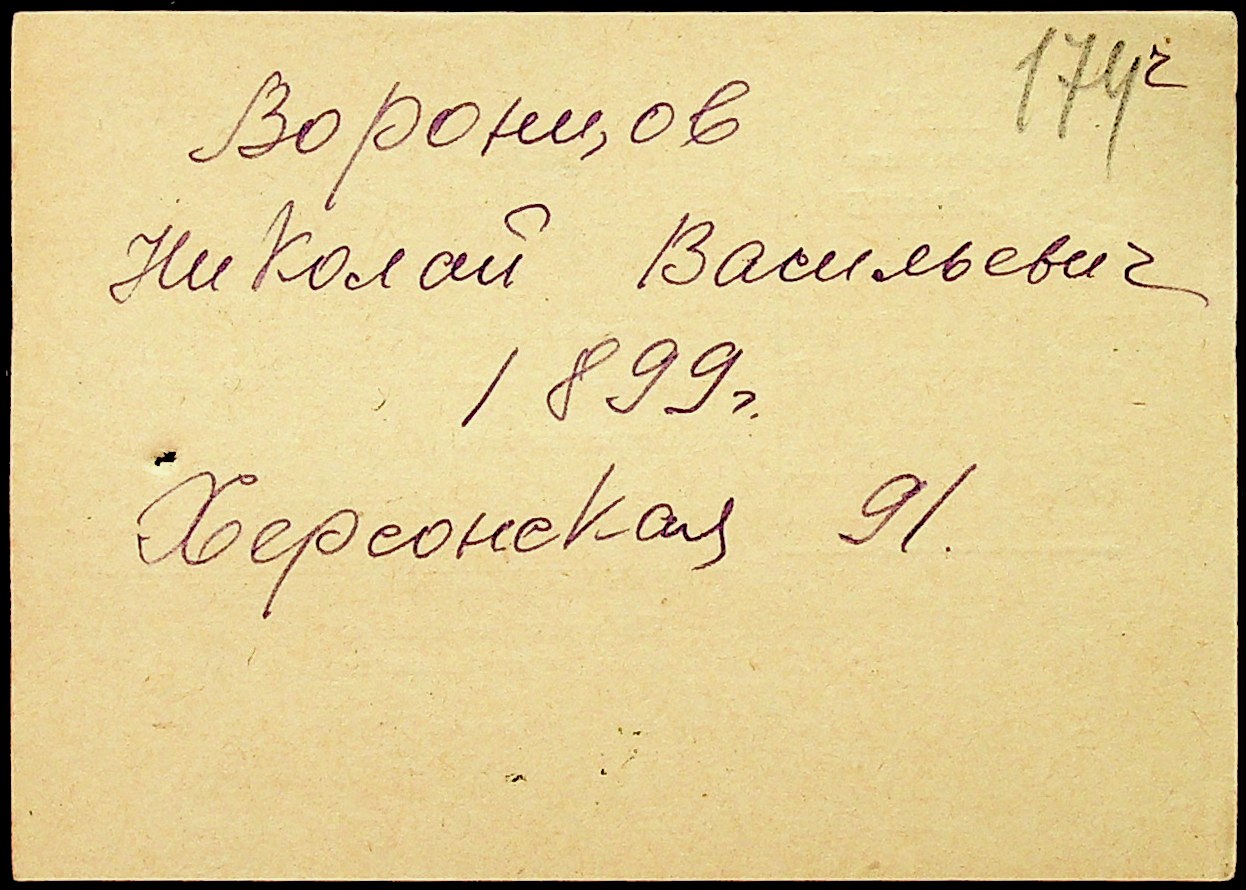 174 ч
Воронцов
Николай Васильевич
1899г.
Херсонская 91.